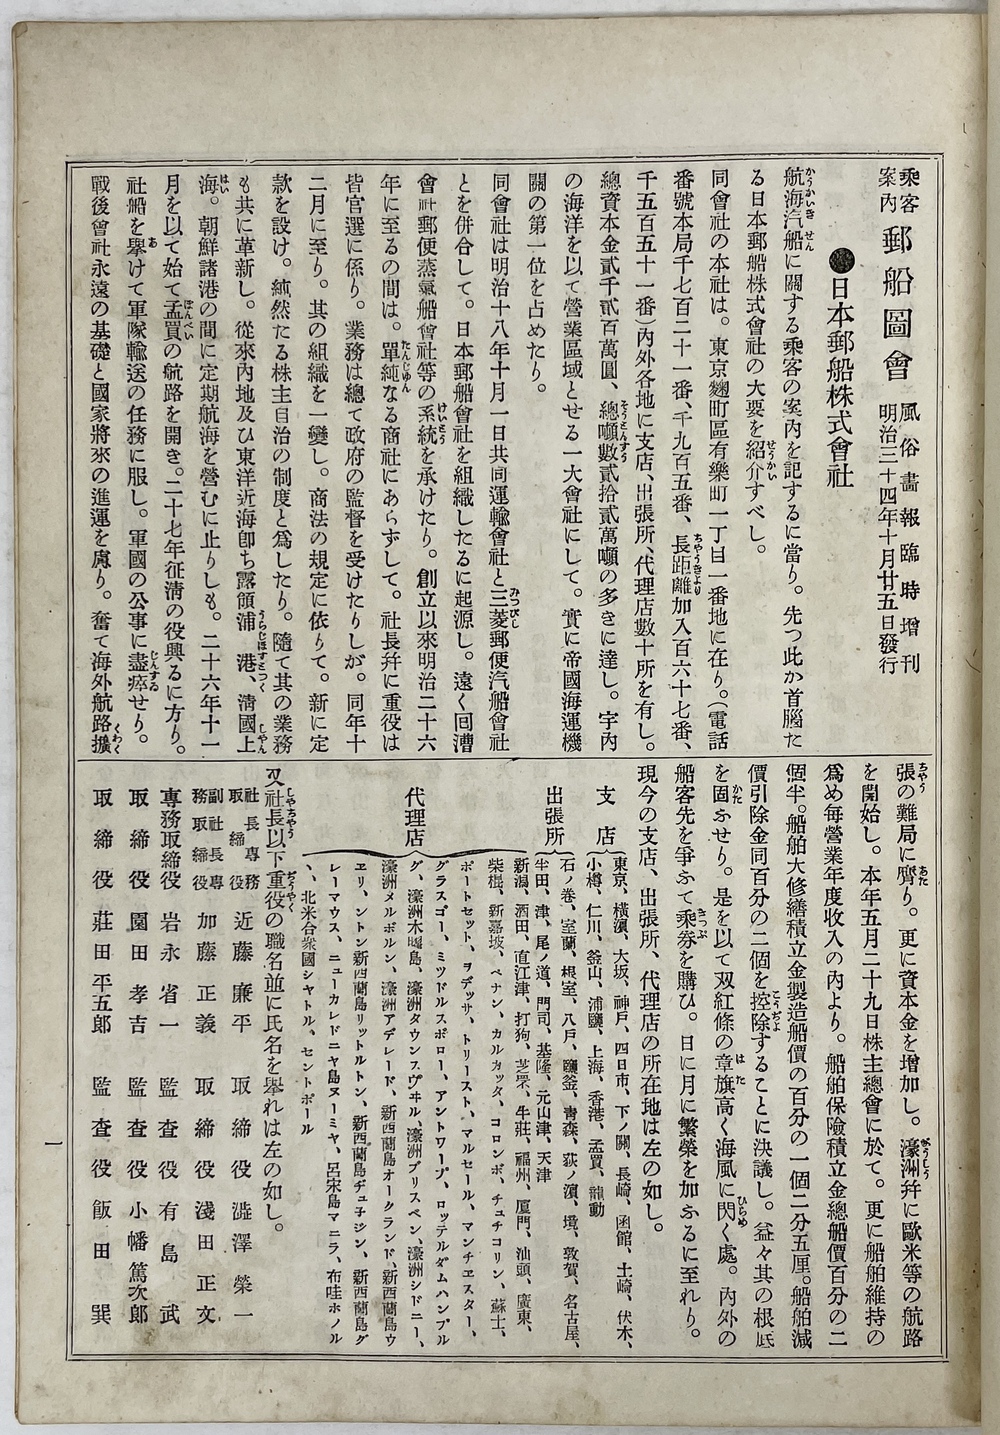 乘客案內 郵船圖會 風俗畵報臨時增刊 明治三十四年十月廿五日發行
●日本郵船株式會社
航海汽船に關する乘客の案內を記するに當り。先つ此か首腦た
る日本郵船株式會社の大要を紹介すべし。
同會社の本社は。東京麴町區有樂町一丁目一番地に在り。(電話
番號本局千七百二十一番、千九百五番、長距離加入百六十七番、
千五百五十一番)內外各地に支店、出張所、代理店數十所を有し。
總資本金貳千貳百萬圓、總噸數貳拾貳萬噸の多きに達し。宇內
の海洋を以て營業區域とせる一大會社にして。實に帝國海運機
關の第一位を占めたり。
同會社は明治十八年十月一日共同運輸會社と三菱郵便汽船會社
とを併合して。日本郵船會社を組織したるに起源し。遠く囘漕
會社郵便蒸氣船會社等の系統を承けたり。創立以來明治二十六
年に至るの間は。單純なる商社にあらずして。社長幷に重役は
皆官選に係り。業務は總て政府の監督を受けたりしが。同年十
二月に至り。其の組織を一變し。商法の規定に依りて。新に定
款を設け。純然たる株主自治の制度と爲したり。隨て其の業務
も共に革新し。從來內地及ひ東洋近海卽ち露領浦港、淸國上
海。朝鮮諸港の間に定期航海を營むに止りしも。二十六年十一
月を以て始て孟買の航路を開き。二十七年征淸の役興るに方り。
社船を擧けて軍隊輸送の任務に服し。軍國の公事に盡瘁せり。
戰後會社永遠の基礎と國家將來の進運を慮り。奮て海外航路擴
張の難局に膺り。更に資本金を增加し。濠洲幷に歐米等の航路
を開始し。本年五月二十九日株主總會に於て。更に船舶維持の
爲め每營業年度收入の內より。船舶保險積立金總船價百分の二
個半。船舶大修繕積立金製造船價の百分の一個二分五厘。船舶減
價引除金同百分の二個を控除することに決議し。益々其の根底
を固ふせり。是を以て双紅條の章旗高く海風に閃く處。內外の
船客先を爭ふて乘券を購ひ。日に月に繁榮を加ふるに至れり。
現今の支店、出張所、代理店の所在地は左の如し。
支店 東京、橫濱、大坂、神戶、四日市、下ノ關、長崎、函館、土崎、伏木、
小樽、仁川、釜山、浦鹽、上海、香港、孟買、龍動
出張所 石ノ卷、室蘭、根室、八戶、鹽釜、靑森、荻ノ濱、境、敦賀、名古屋、
半田、津、尾ノ道、門司、基隆、元山津、天津
代理店 新潟、酒田、直江津、打狗、芝罘、牛莊、福州、厦門、汕頭、廣東、
柴棍、新嘉坡、ペナン、カルカッタ、コロンボ、チュチコリン、蘇士、
ポートセット、ヲデッサ、トリースト、マルセール、マンチヱスター、
グラスゴー、ミツドルスボロー、アントワープ、ロッテルダムハンブル
グ、濠洲木曜島、濠洲タウンスヴヰル、濠洲ブリスベン、濠洲シドニー、
濠洲メルボルン、濠洲アデレード、新西蘭島オークランド、新西蘭島ウ
ヱリ、ントン新西蘭島リットルトン、新西蘭島ヂュ子ジン、新西蘭島グ
レーマウス、ニューカレドニヤ島ヌーミヤ、呂宋島マニラ、布哇ホノル
ヽ、北米合衆國シヤトル、セントポール
又社長以下重役の職名並に氏名を擧れは左の如し。
社長專務取締役 近藤廉平 取締役 澁澤榮一
副社長專務取締役 加藤正義 取締役 淺田正文
專務取締役 岩永省一 監査役 有島武
取締役 園田孝吉 監査役 小幡篤次郎
取締役 莊田平五郎 監査役 飯田巽
一